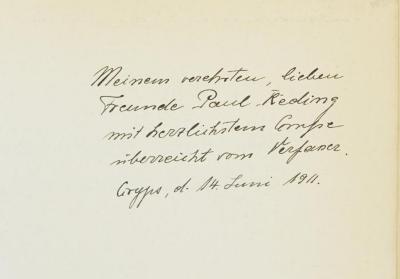 Meinem verehrten, lieben
Freunde Paul Reding
mit herzlichstem Grusse
überreicht vom Verfasser.
d. 14. Juni 1911.